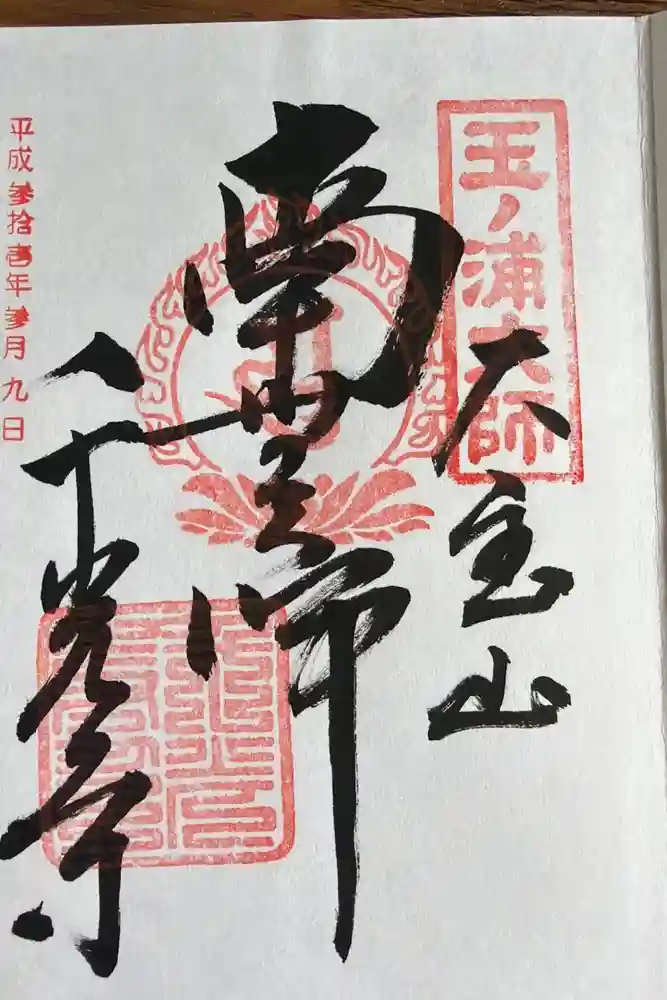 玉ノ浦大師
大宝山
南無大師
千光寺
平成参拾壱年参月九日